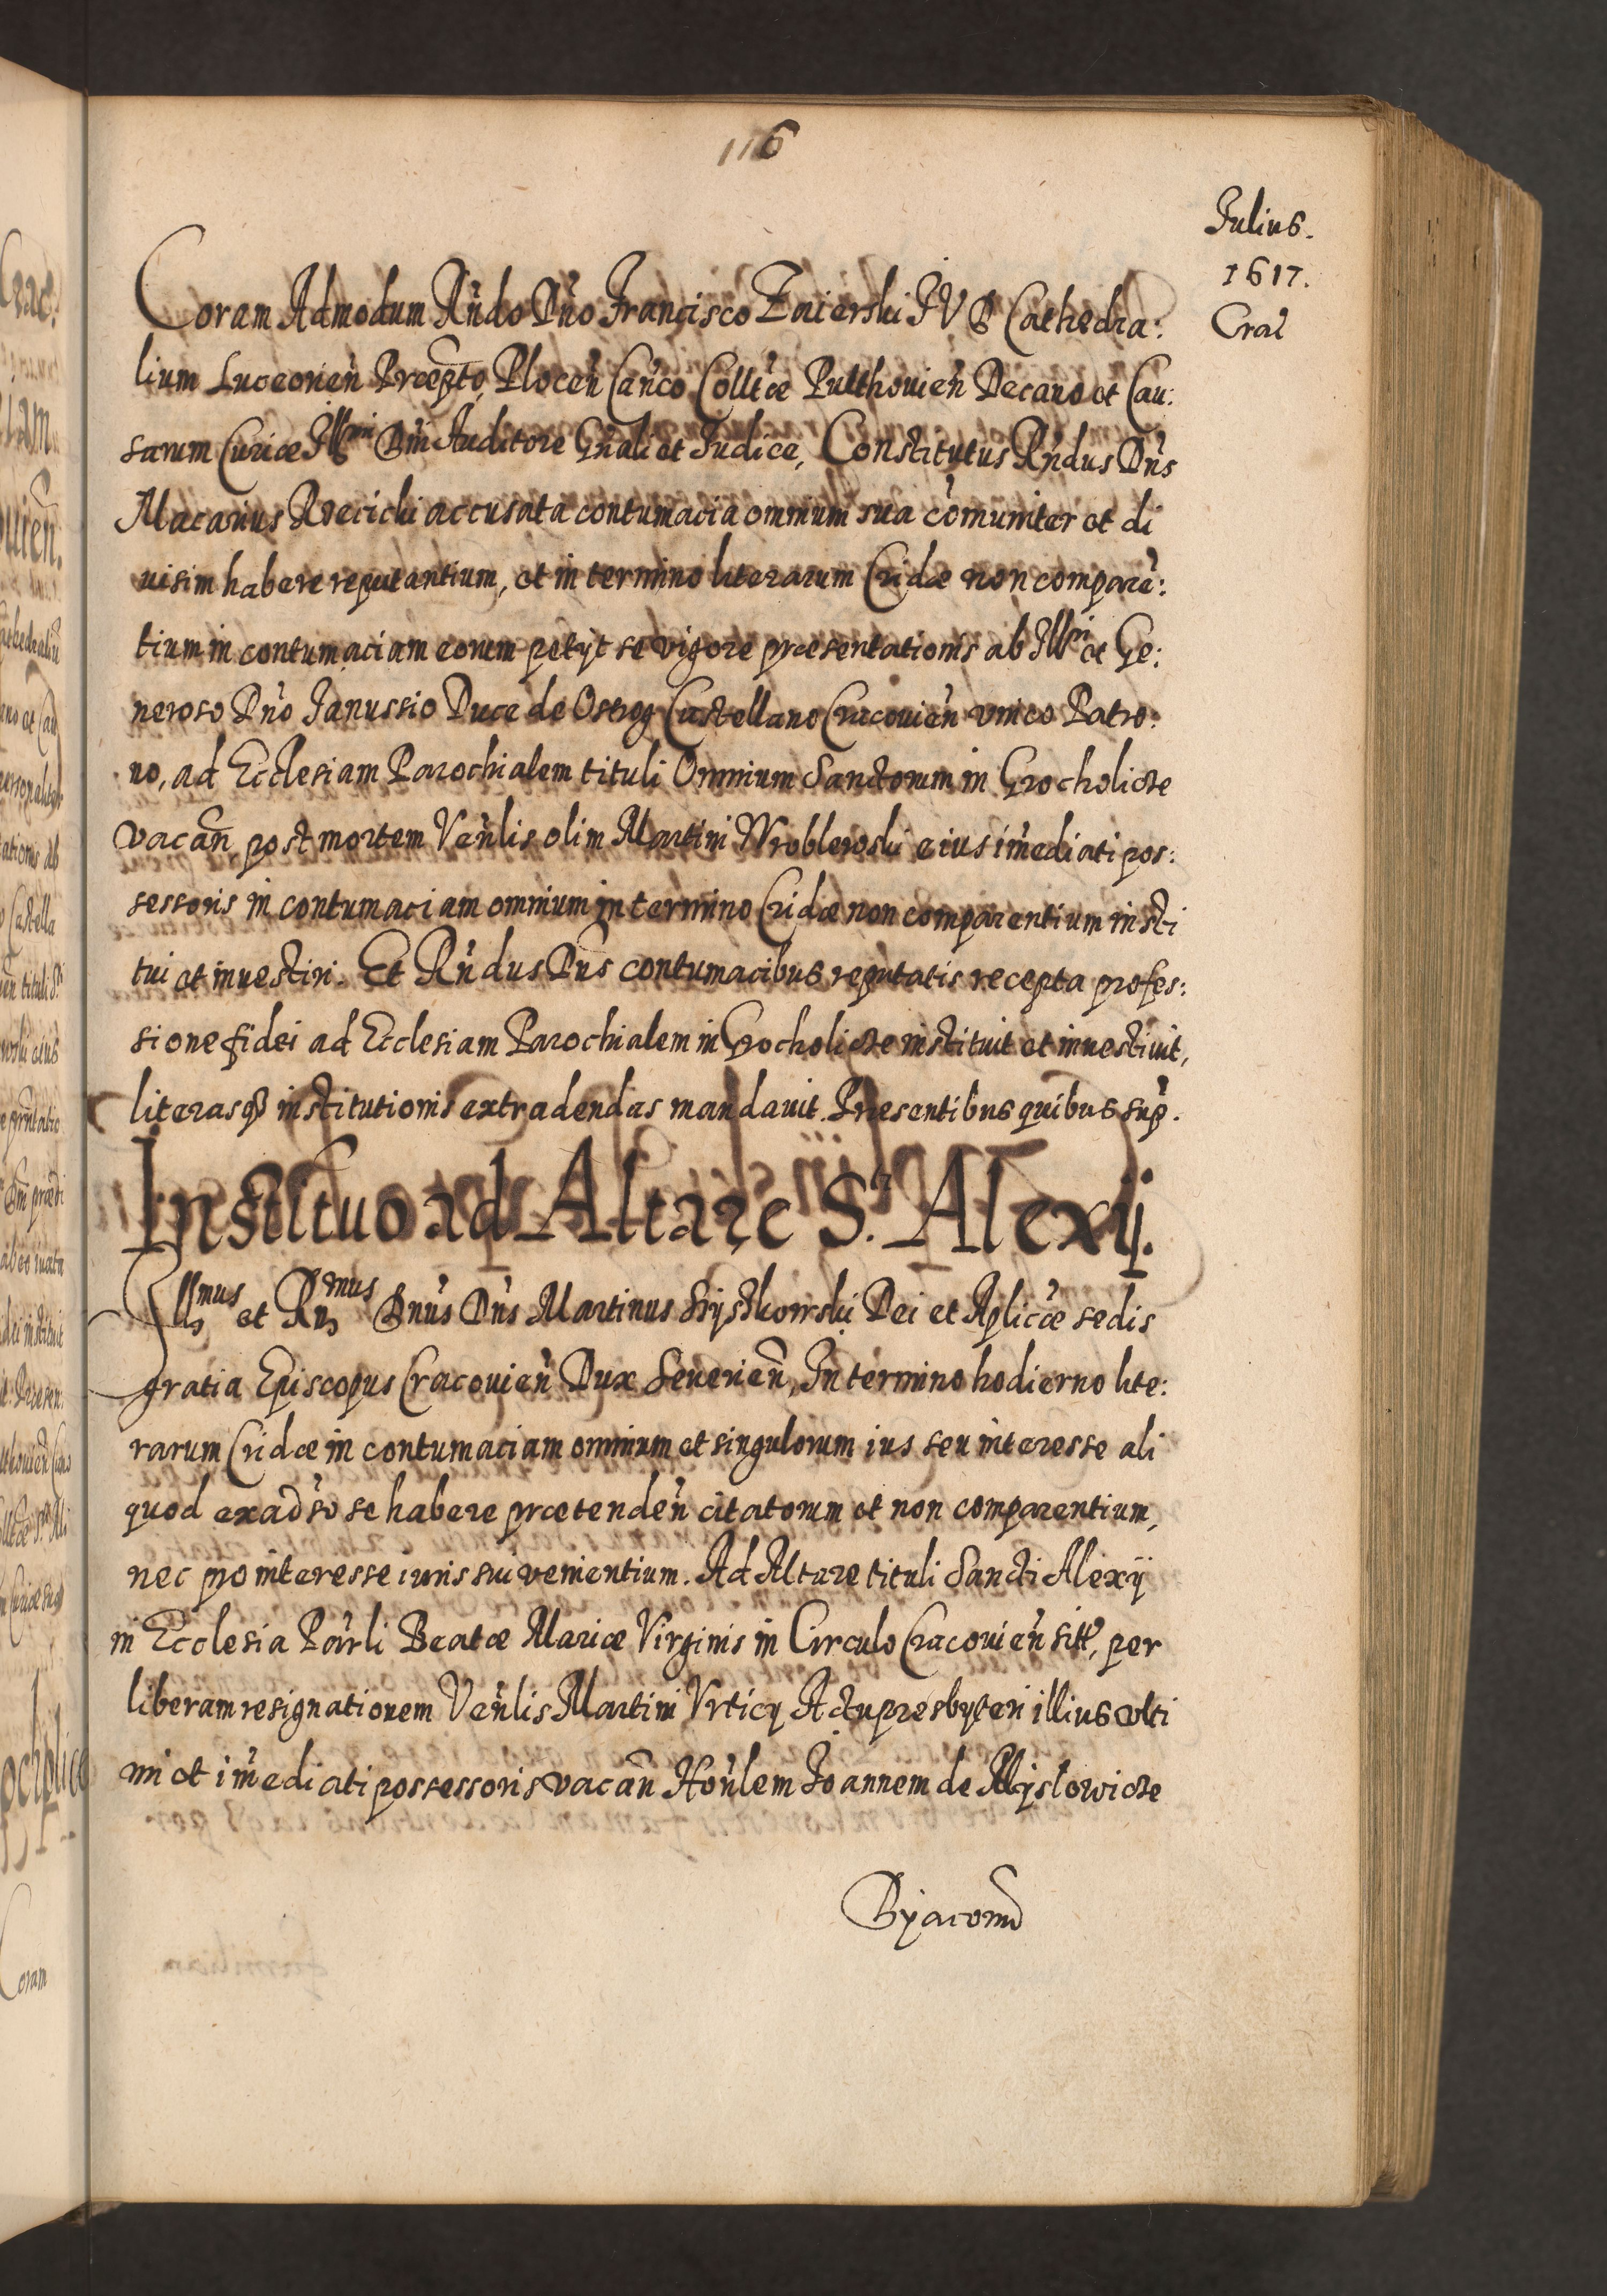 116
Julius.
1617.
Crac̃
Coram Admodum Rñdo Dño Francisco Zaierski J V D Cathedra:
lium Luceorien̄ Præpto, Plocen̄ Canco Colltæ Pulthouien̄ Decano et Cau:
sarum Curiæ Illmi Dni Auditore Gñali et Judice, Constitutus Rñdus Dñs
Macarius accusata contumacia omnium sua com̄uniter et di
uisim habere reputantium, et in termino literarum Cridæ non comparē:
tium in contumaciam eorum petijt se vigore præsentationis ab Illri et Ge:
neroso Dño Janussio Duce de Ostrog Castellano Cracouien̄ vnico Patro:
no, ad Ecclesiam Parochialem tituli Omnium Sanctorum in Grocholicze
vacan̄ post mortem Veñlis olim Martini Wroblewski eius im̄ediati pos:
sessoris in contumaciam omnium in termino Cridæ non comparentium insti
tui et inuestiri. Et Rñdus Dñs contumacibus reputatis recepta profes:
sione fidei ad Ecclesiam Parochialem in Grocholicze instituit et inuestiuit,
literasq́ institutionis extradendas mandauit. Præsentibus quibus sup̄.
Institutio ad Altare S.ti Alexij.
Illmus et Rn̄mus Dñus Dñs Martinus Szyszkowski Dei et Aplicæ sedis
gratia Episcopus Cracouien̄ Dux Seuerien̄, In termino hodierno lite:
rarum Cridæ in contumaciam omnium et singulorum ius seu interesse ali
quod ex ad̄so se habere prætenden̄ citatorum et non comparentium,
nec pro interesse iuris sui venientium. Ad Altare tituli Sancti Alexij
in Ecclesia Parl̃i Beatæ Mariæ Virginis in Circulo Cracouien̄ sitt, per
liberam resignationem Veñlis Martini Vrticy Actu presbyteri illius vlti
mi et im̄ediati possessoris vacan̄ Honlem Joannem de Myslowicze
Dyaconū